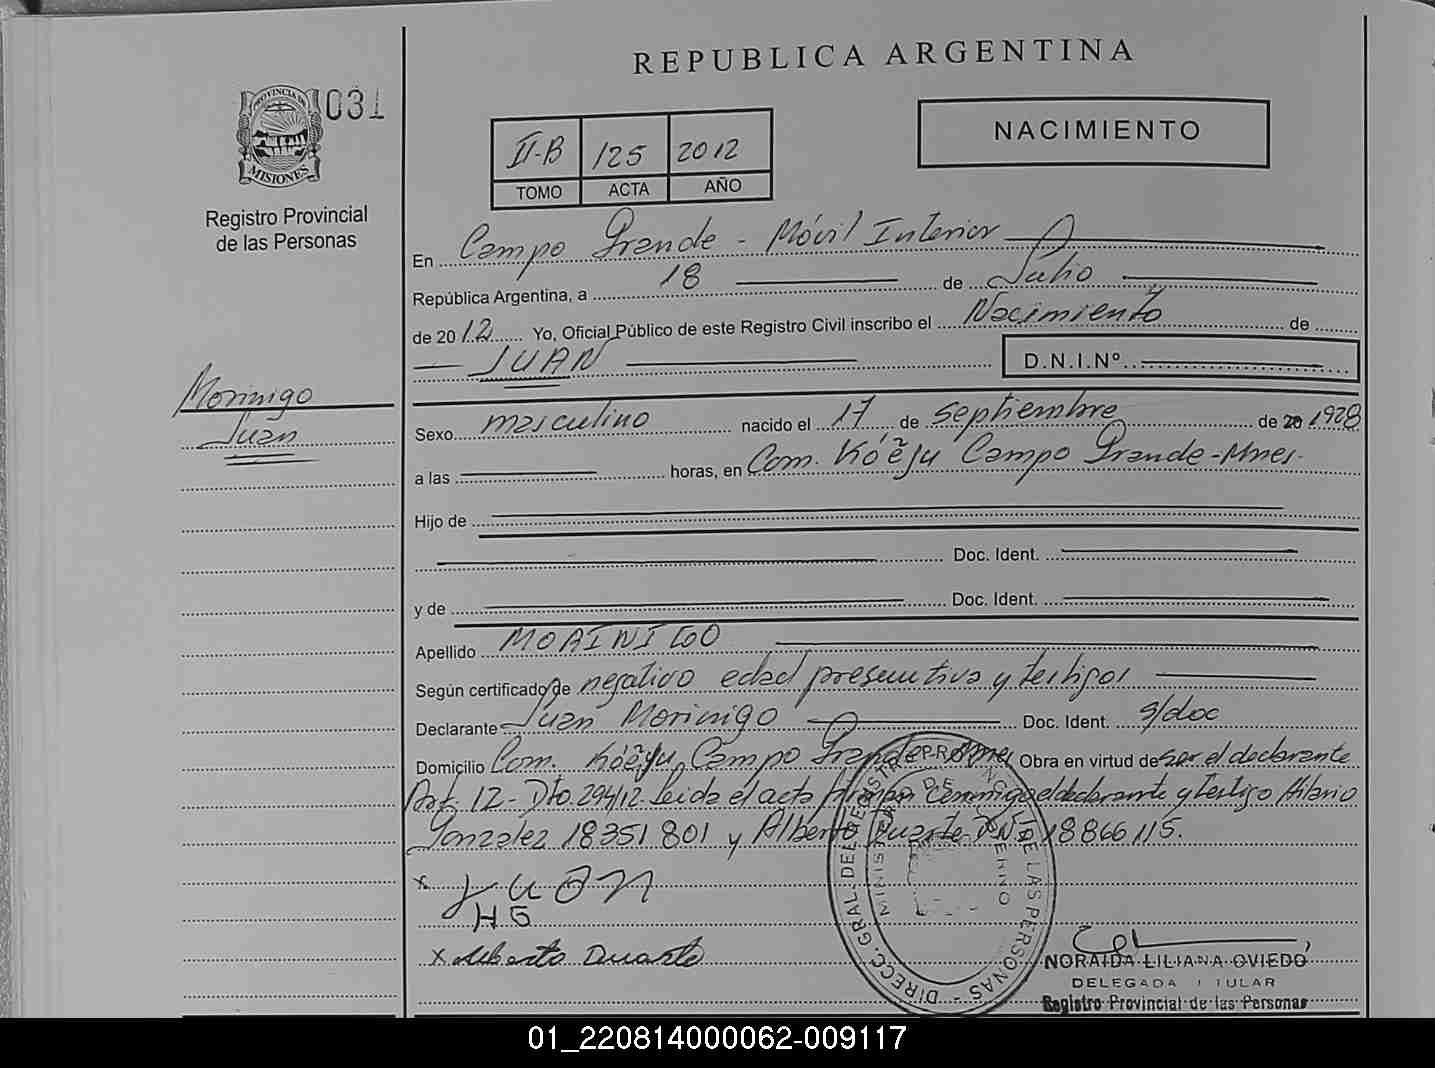 REPUBLICA ARGENTINA
PROVINCIA DE
MISIONES
031
Registro Provincial
de las Personas
II-B 125 2012
TOMO ACTA AÑO
NACIMIENTO
En Campo Grande - Móvil Interior
República Argentina, a 18 de Julio
de 2012 Yo, Oficial Público de este Registro Civil inscribo el Nacimiento de
JUAN D.N.I.Nº
Morinigo
Juan
Sexo masculino nacido el 17 de septiembre de 20 1928
a las horas, en Com. Kóẽju Campo Grande-Mnes-
Hijo de
Doc. Ident.
y de Doc. Ident.
Apellido MORINIGO
Según certificado de negativo edad presuntiva y testigos
Declarante Juan Morinigo Doc. Ident. s/doc
Domicilio Com. Kóẽju Campo Grande Mnes Obra en virtud de ser el declarante
Art. 12 - Dto. 294/12. Leida el acta firman conmigo el declarante y testigo Hilario
Gonzalez 18351801 y Alberto Duarte DNI 18866115.
x Juan
HG
x Alberto Duarte
DIRECC. GRAL. DEL REGISTRO PROVINCIAL DE LAS PERSONAS -
MINISTERIO DE GOBIERNO
NORAIDA LILIANA OVIEDO
DELEGADA TITULAR
Registro Provincial de las Personas
01_220814000062-009117